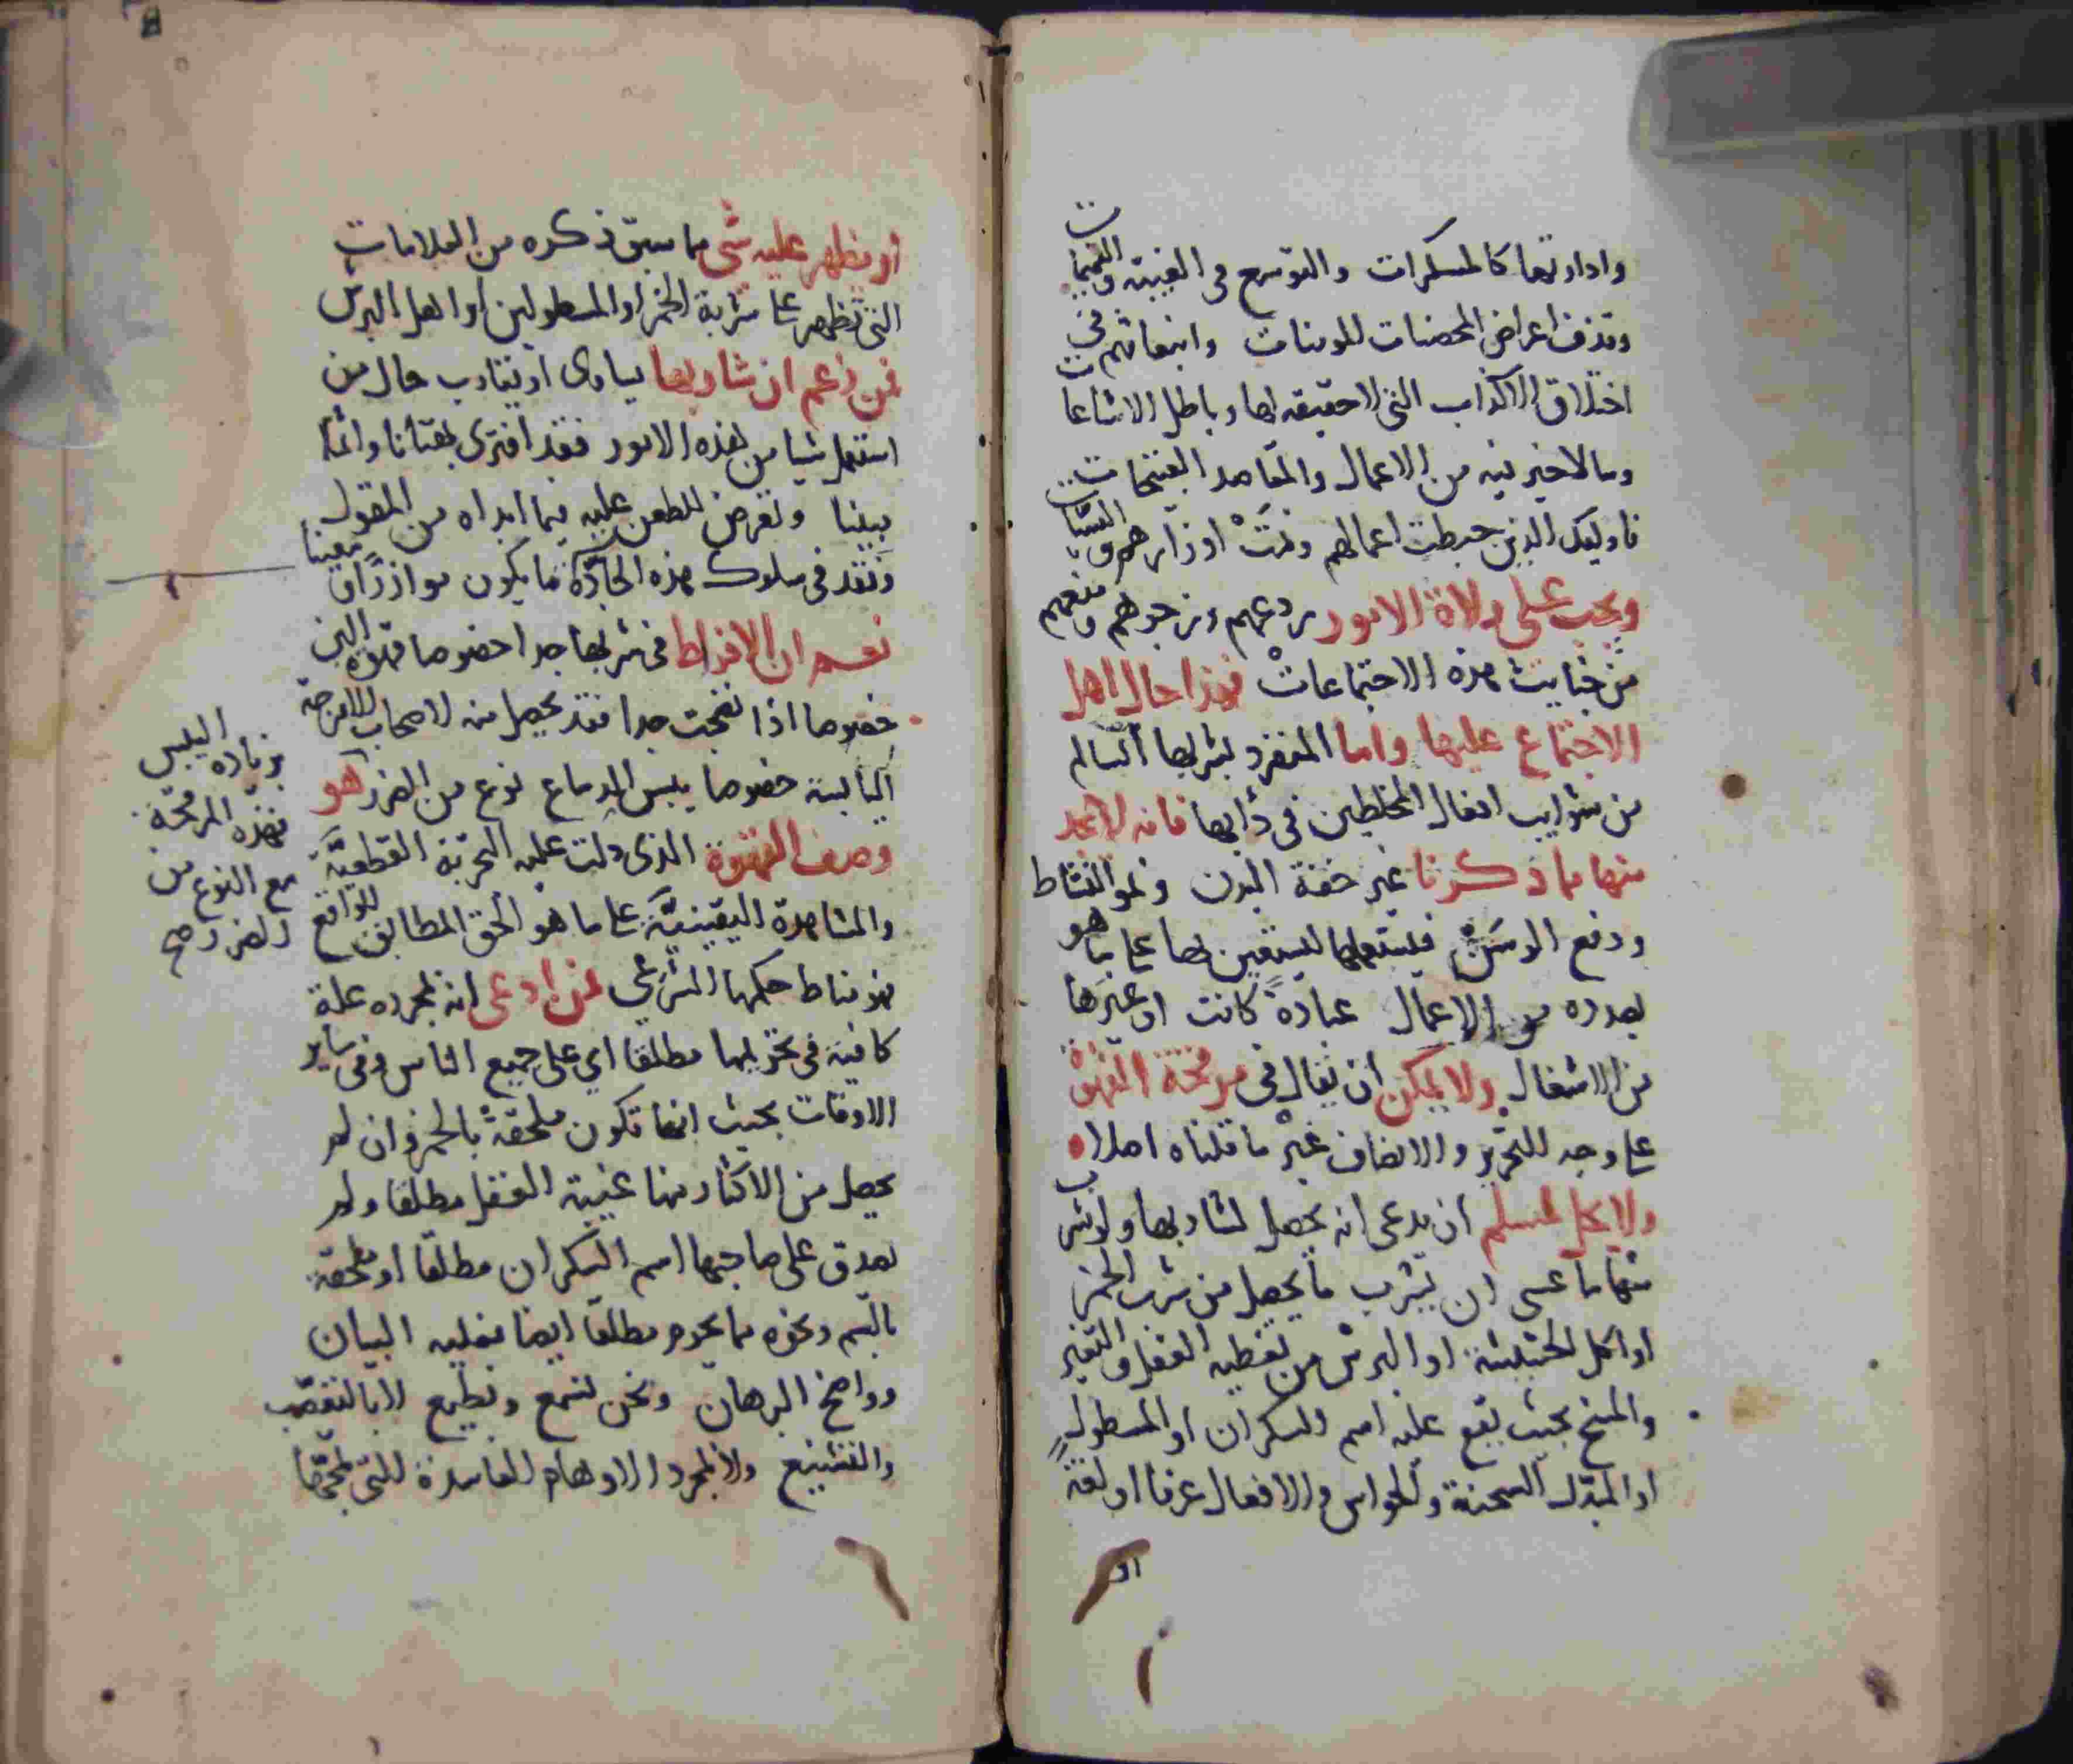 وادارتها كالمسكرات والتوسع في الغيبة والنميمات
وقذف اعراض المحصنات المومنات وانبعاثهم في
اختلاق الاكذاب التي لا حقيقه لها وباطل الاشاعات
ومالا خير فيه من الاعمال والمقاصد القبيحات
فاوليك الذين حبطت اعمالهم ونمت اوزارهم والسيات
ويجب على ولاة الامور ردعهم وزجرهم ومنعهم
من خبايث هذه الاجتماعات فهذا حال اهل
الاجتماع عليها واما المنفرد بشربها السالم
من شوايب افعال المخلطين في دابها فانه لا يجد
منها ما ذكرنا غير خفة البدن ونمو النشاط
ودفع الوسن فيستعملها ليستعين بها على ما هو
بصدده من الاعمال عبادة كانت او غيرها
من الاشغال ولا يمكن ان يقال في مرتحة القهوة
على وجه التحرير والانصاف غير ما قلناه اصلا
ولا يحل لمسلم ان يدعى انه يحصل لشاربها ولو شرب
منها ما عسى ان يشرب ما يحصل من شرب الخمر
او اكل الحشيشة او البرش من تغطيه العقل والتغير
والمسخ بحيث يقع عليه اسم السكران او المسطول
او المبتدل السحنة والحواس والافعال عرفا او لغة
او
او يظهر عليه شى مما سبق ذكره من العلامات
التي تظهر على شربة الخمر او المسطولين او اهل البرش
فمن زعم ان شاربها يساوى او يقارب حال من
استعمل شيا من هذه الامور فقد افترى بهتانا واثما
مبينا وتعرض للطعن عليه فيما ابداه من المقول
وفقد في سلوك هذه الجادة ما يكون موازرا ومعينا
نعم ان الافراط في شربها جدا خصوصا قهوة البن
خصوصا اذا نضجت جدا فقد يحصل منه لاصحاب الامزجة
اليابسة خصوصا يبس الدماغ نوع من الضرر هو
وصف القهوة الذي دلت عليه التجربة القطعية
والمشاهدة اليقينية على ما هو الحق المطابق للواقع
فهو مناط حكمها الشرعي فمن ادعى انه بمجرده علة
كافية في تحريمها مطلقا اي على جميع الناس وفي ساير
الاوقات بحيث انها تكون ملحقة بالخمر وان لم
يحصل من الاكثار منها غيبة العقل مطلقا ولم
يصدق على صاحبها اسم السكران مطلقا او ملحقة
بالسم ونحوه مما يحرم مطلقا ايضا فعليه البيان
وواضح البرهان ونحن نسمع ونطيع لا بالتعصب
والتشنيع ولا بمجرد الاوهام الفاسدة التي تمجها
بزياده اليبس
فهذه المرتحة
مع النوع من
الضرر صح